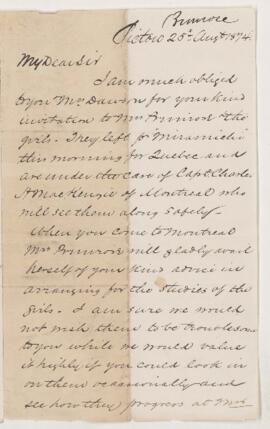 Primrose
Pictou 25th Augt 1874.
My Dear Sir
I am much obliged
to you Mrs Dawson for your kind
invitation to Mrs Primrose & the
girls. They left p "Miramichi"
this morning for Quebec and
are under the care of Capt Charles
A MacKenzie of Montreal who
will see them along safely.
When you come to Montreal
Mrs Primrose will gladly avail
herself of your kind advice in
arranging for the studies of the
girls. I am sure we would
not wish them to be troublesome
to you while we would value
it highly if you could look in
on them occasionally and
see how they progress at Mrs